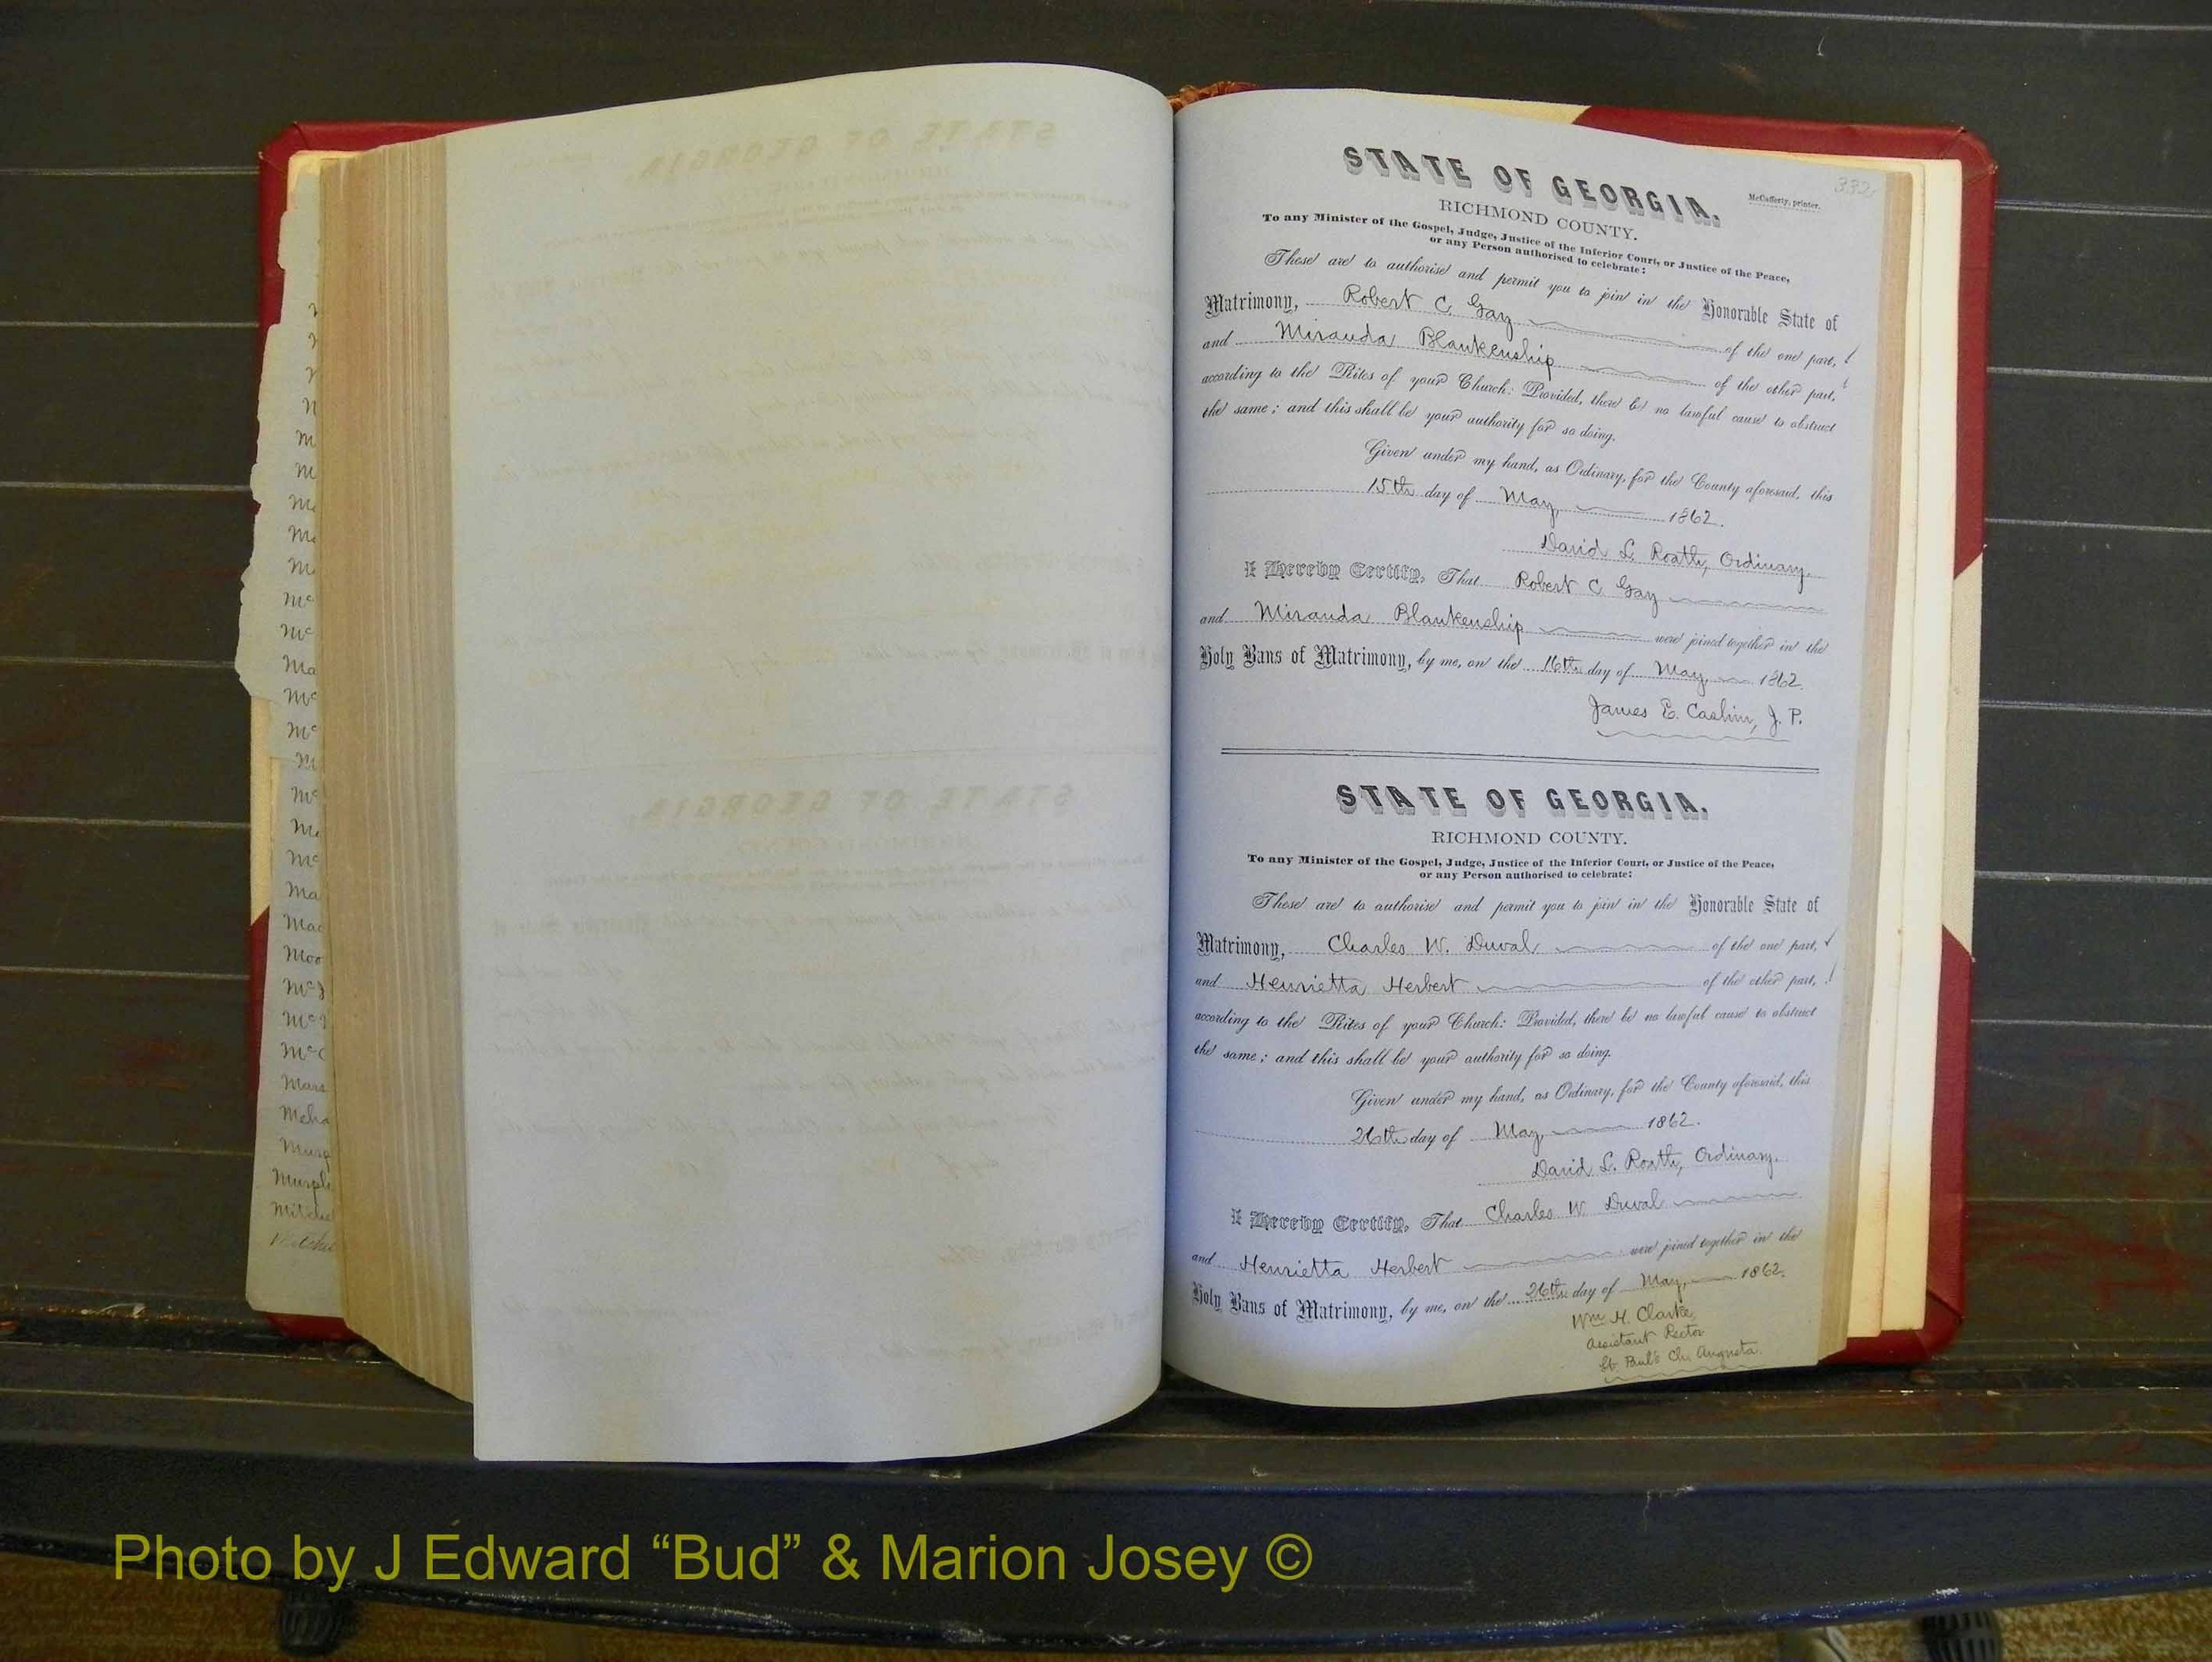 332
STATE OF GEORGIA,
McCafferty, printer.
RICHMOND COUNTY.
To any Minister of the Gospel, Judge, Justice of the Inferior Court, or Justice of the Peace,
or any Person authorised to celebrate:
These are to authorise and permit you to join in the Honorable State of
Matrimony, Robert C. Gay of the one part,
and Miranda Blankenship of the other part,
according to the Rites of your Church: Provided, there be no lawful cause to obstruct
the same; and this shall be your authority for so doing.
Given under my hand, as Ordinary, for the County aforesaid, this
15th day of May, 1862.
David L. Roath, Ordinary.
I Hereby Certify, That Robert C. Gay
and Miranda Blankenship were joined together in the
Holy Bans of Matrimony, by me, on the 16th day of May, 1862.
James E. Cashin, J. P.
STATE OF GEORGIA,
RICHMOND COUNTY.
To any Minister of the Gospel, Judge, Justice of the Inferior Court, or Justice of the Peace,
or any Person authorised to celebrate:
These are to authorise and permit you to join in the Honorable State of
Matrimony, Charles W. Duval of the one part,
and Henrietta Herbert of the other part,
according to the Rites of your Church: Provided, there be no lawful cause to obstruct
the same; and this shall be your authority for so doing.
Given under my hand, as Ordinary, for the County aforesaid, this
26th day of May, 1862.
David L. Roath, Ordinary.
I Hereby Certify, That Charles W. Duval
and Henrietta Herbert were joined together in the
Holy Bans of Matrimony, by me, on the 26th day of May, 1862.
Wm H. Clarke,
Assistant Rector
St. Paul's Ch. Augusta.
Photo by J Edward “Bud” & Marion Josey ©